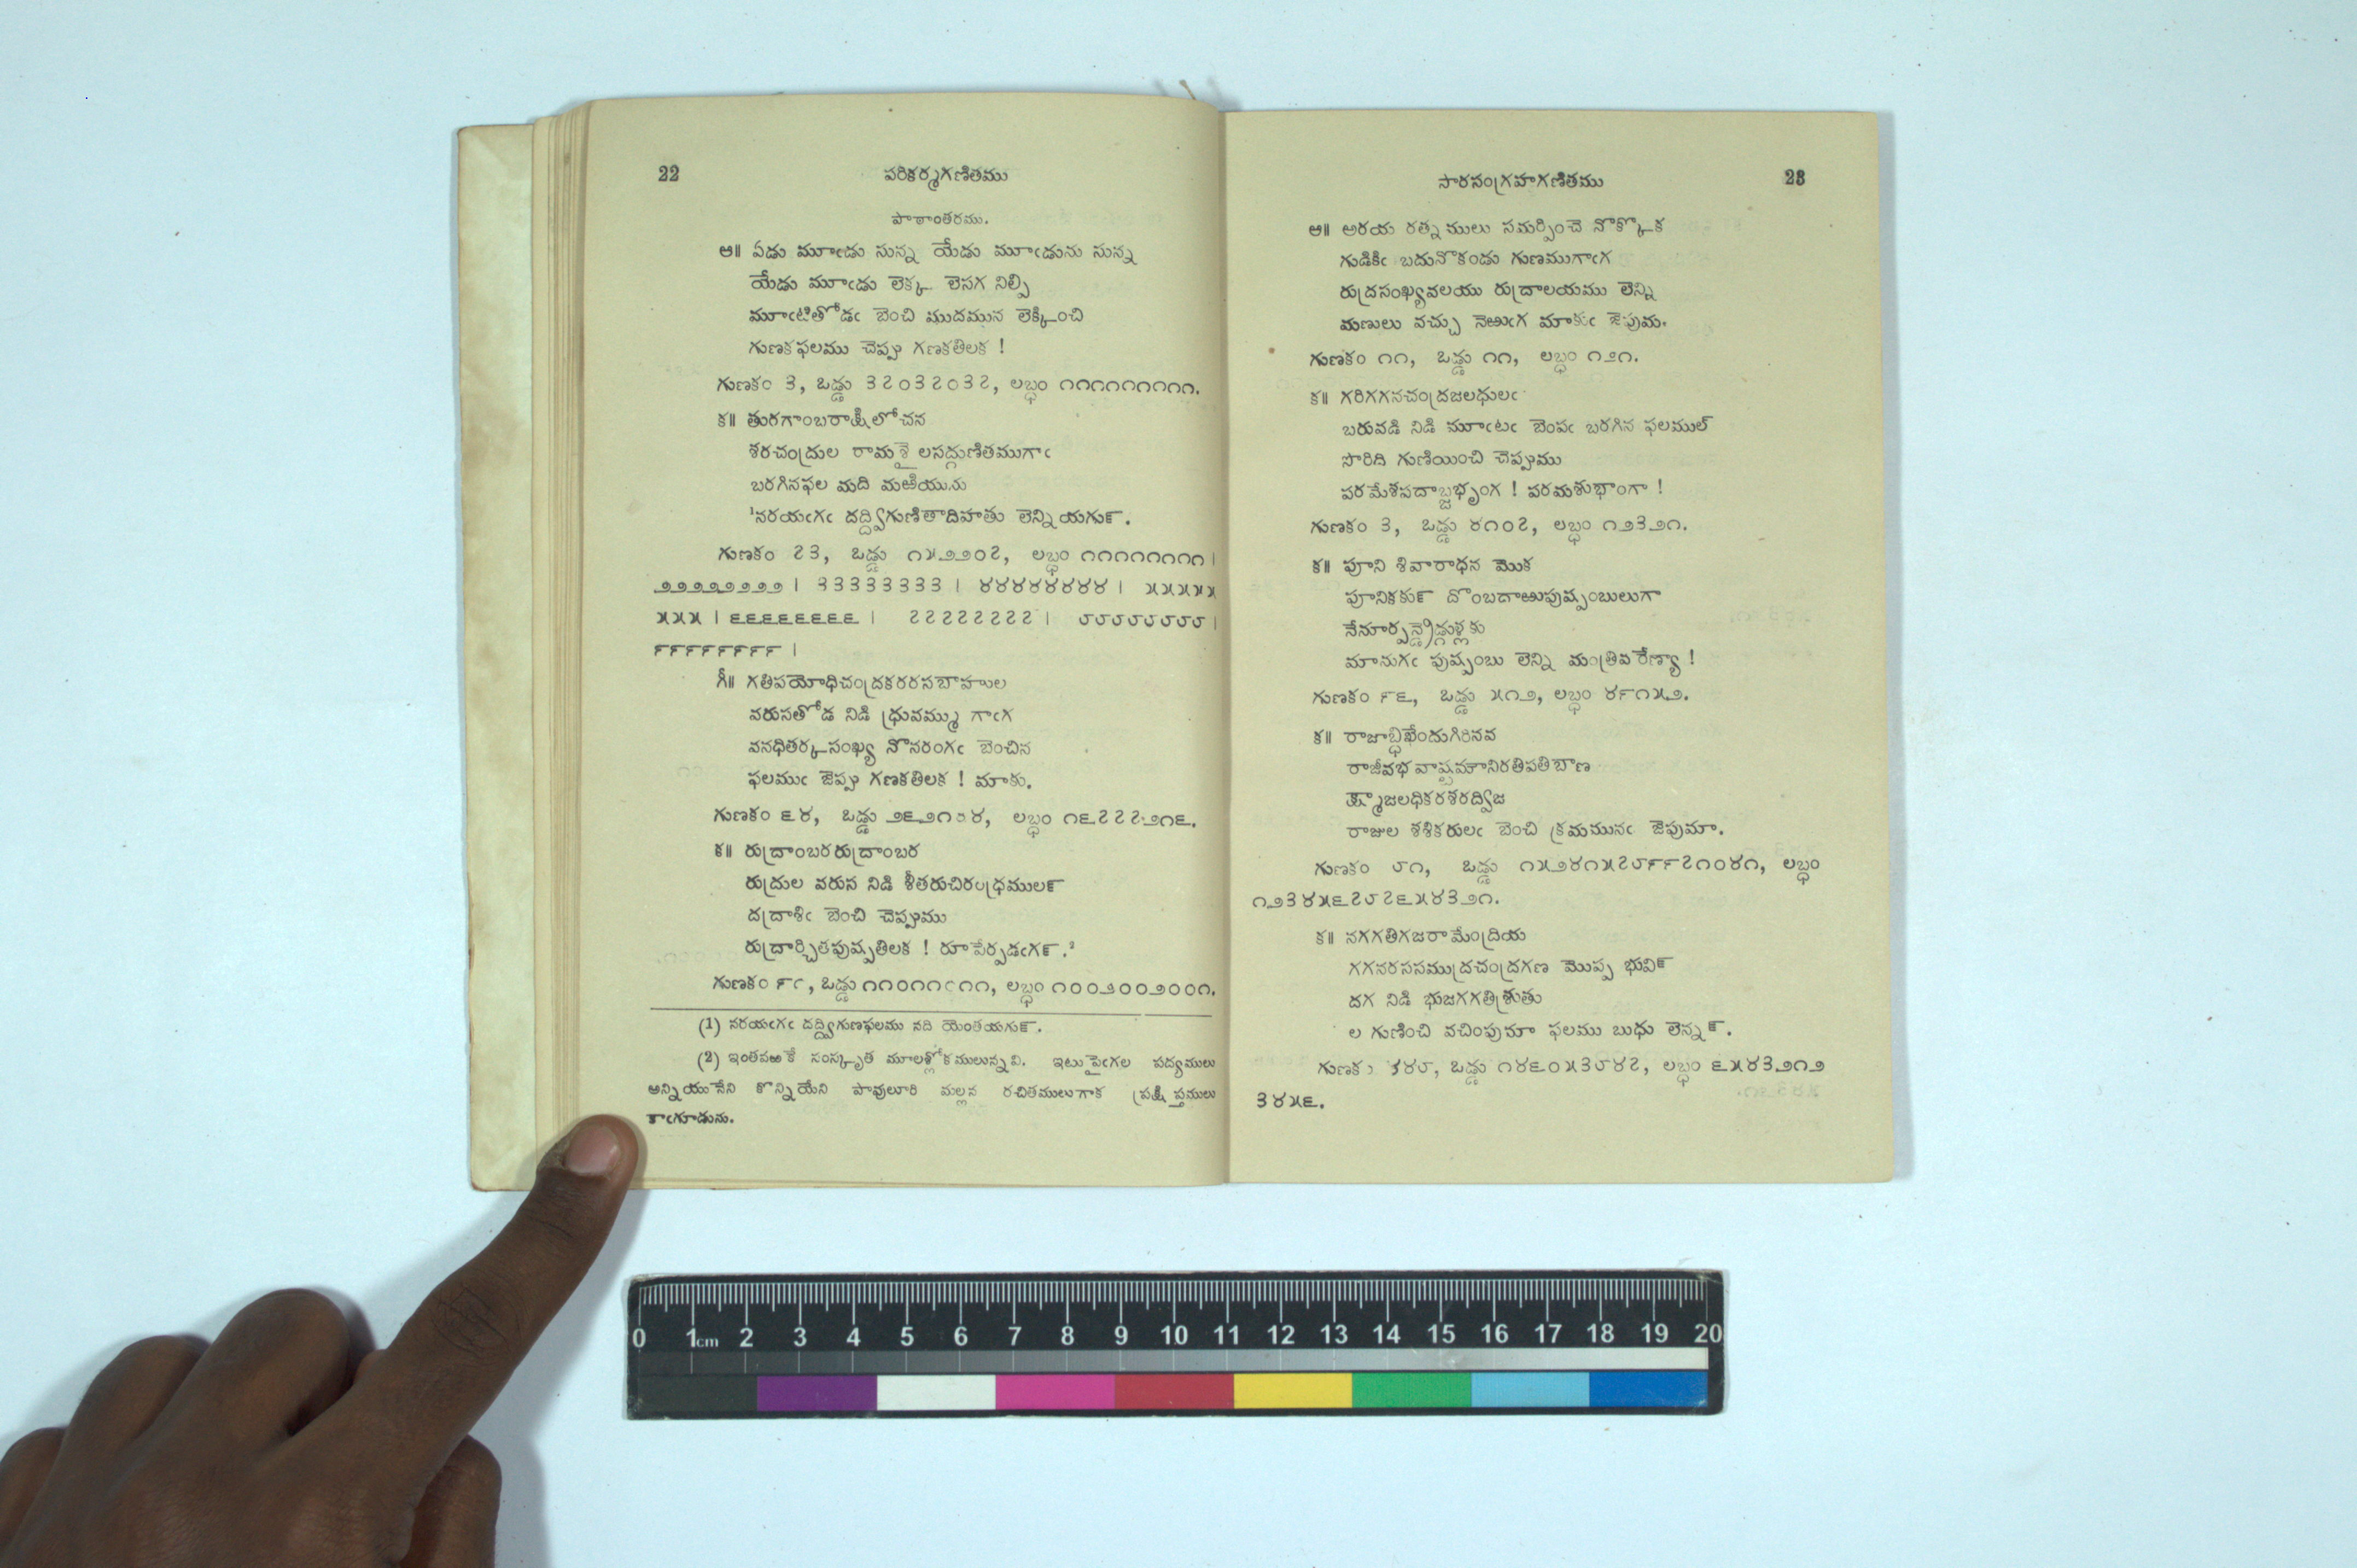 22
పరికర్మగణితము
పాఠాంతరము.
ఆ॥ ఏడు మూఁడు సున్న యేడు మూఁడును సున్న
యేడు మూఁడు లెక్క లెసగ నిల్పి
మూఁటితోడఁ బెంచి ముదమున లెక్కించి
గుణకఫలము చెప్పు గణకతిలక !
గుణకం ౩, ఒడ్డు ౩౭౦౩౭౦౩౭, లబ్ధం ౧౧౧౧౧౧౧౧౧.
క॥ తురగాంబరాక్షిలోచన
శరచంద్రుల రామశైలసద్గుణితముగాఁ
బరగినఫల మది మఱియును
¹నరయఁగఁ దద్ద్విగుణితాదిహతు లెన్ని యగున్.
గుణకం ౭౩, ఒడ్డు ౧౫౨౨౦౭, లబ్ధం ౧౧౧౧౧౧౧౧ |
౨౨౨౨౨౨౨౨ | ౩౩౩౩౩౩౩౩ | ౪౪౪౪౪౪౪౪ | ౫౫౫౫౫
౫౫౫ | ౬౬౬౬౬౬౬౬ | ౭౭౭౭౭౭౭౭ | ౮౮౮౮౮౮౮౮ |
౯౯౯౯౯౯౯౯ |
గీ॥ గతిపయోధిచంద్రకరరసబాహుల
వరుసతోడ నిడి ధ్రువమ్ము గాఁగ
వనధితర్కసంఖ్య నొనరంగఁ బెంచిన
ఫలముఁ జెప్పు గణకతిలక ! మాకు.
గుణకం ౬౪, ఒడ్డు ౨౬౨౧౦౪, లబ్ధం ౧౬౭౭౭౨౧౬.
క॥ రుద్రాంబరరుద్రాంబర
రుద్రుల వరుస నిడి శీతరుచిరంధ్రములన్
దద్రాశిఁ బెంచి చెప్పుము
రుద్రార్చితపుష్పతిలక ! రూపేర్పడఁగన్.²
గుణకం ౯౧, ఒడ్డు ౧౧౦౧౧౦౧౧, లబ్ధం ౧౦౦౨౦౦౨౦౦౧.
(1) నరయఁగఁ దద్ద్విగుణఫలము నది యెంతయగున్.
(2) ఇంతవఱకే సంస్కృత మూలశ్లోకములున్నవి. ఇటుపైఁగల పద్యములు
అన్నియునేని కొన్నియేని పావులూరి మల్లన రచితములుగాక ప్రక్షిప్తములు
కాఁగూడును.
సారసంగ్రహగణితము
23
ఆ॥ అరయ రత్నములు సమర్పించె నొక్కొక
గుడికిఁ బదునొకండు గుణముగాఁగ
రుద్రసంఖ్యవలయు రుద్రాలయము లెన్ని
మణులు వచ్చు నెఱుఁగ మాకుఁ జెపుమ.
గుణకం ౧౧, ఒడ్డు ౧౧, లబ్ధం ౧౨౧.
క॥ గరిగగనచంద్రజలధులఁ
బరువడి నిడి మూఁటఁ బెంపఁ బరగిన ఫలముల్
సొరిది గుణియించి చెప్పుము
పరమేశపదాబ్జభృంగ ! పరమశుభాంగా !
గుణకం ౩, ఒడ్డు ౪౧౦౭, లబ్ధం ౧౨౩౨౧.
క॥ పూని శివారాధన మొక
పూనికకున్ దొంబదాఱుపుష్పంబులుగా
నేనూర్పన్డ్రెడ్గుళ్లకు
మానుగఁ పుష్పంబు లెన్ని మంత్రివరేణ్యా !
గుణకం ౯౬, ఒడ్డు ౫౧౨, లబ్ధం ౪౯౧౫౨.
క॥ రాజాబ్ధిఖేందుగిరినవ
రాజీవభవాష్టమౌనిరతిపతిబాణ
క్ష్మాజలధికరశరద్విజ
రాజుల శశికరులఁ బెంచి క్రమమునఁ జెపుమా.
గుణకం ౮౧, ఒడ్డు ౧౫౨౪౧౫౭౮౯౯౭౧౦౪౧, లబ్ధం
౧౨౩౪౫౬౭౮౭౬౫౪౩౨౧.
క॥ నగగతిగజరామేంద్రియ
గగనరససముద్రచంద్రగణ మొప్ప భువిన్
దగ నిడి భుజగగతిశ్రుతు
ల గుణించి వచింపుమా ఫలము బుధు లెన్నన్.
౪౪౮, ఒడ్డు ౧౪౬౦౫౩౮౪౭, లబ్ధం ౬౫౪౩౨౧౨
౩౪౫౬.
0 1cm 2 3 4 5 6 7 8 9 10 11 12 13 14 15 16 17 18 19 20